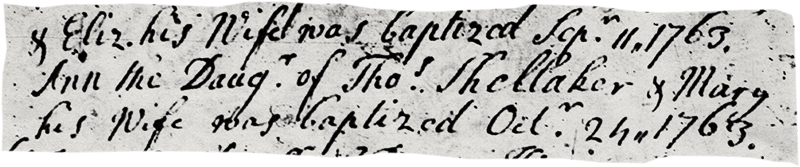 & Eliz. his Wife was baptized Sep.r 11,, 1763.
Ann the Daug.r of Tho.s Shellaker & Mary
his Wife was baptized Oct.r 24,, 1763.